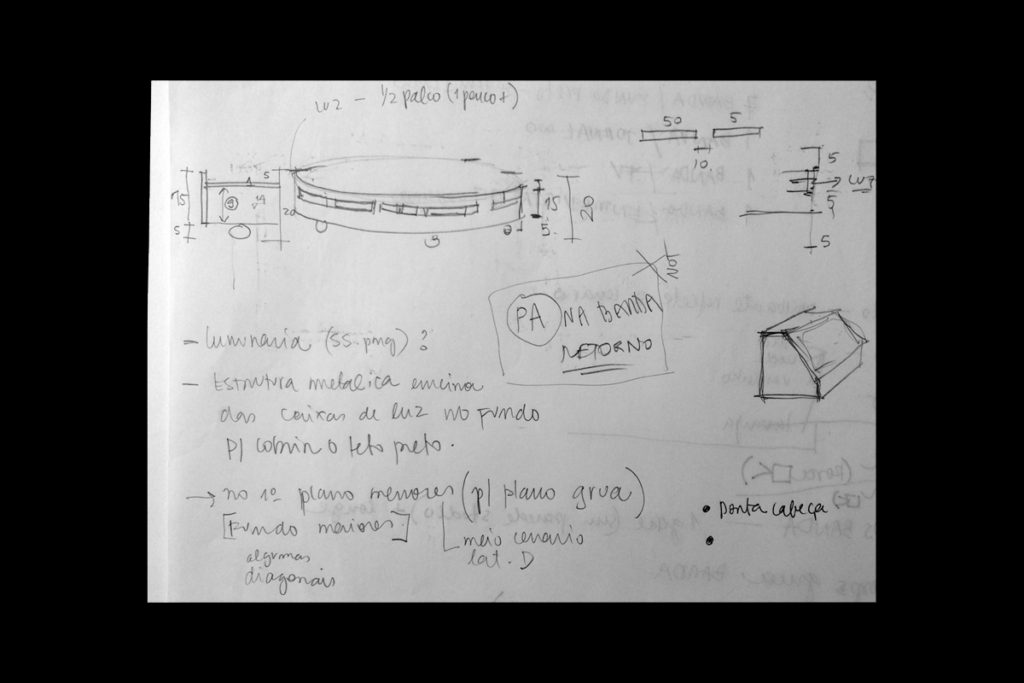 LUZ - 1/2 palco (1 pouco +)
50
5
10
5
LUZ
5
5
5
15
9
5
20
15
5
20
PA NA BANDA
RETORNO
NO
- Luminária (SS.png) ?
- Estrutura metálica encima
das caixas de luz no fundo
p/ cobrir o teto preto.
→ no 1º plano menores (p/ plano grua)
[Fundo maiores]
meio cenario
lat. D
algumas
diagonais
• ponta cabeça
•